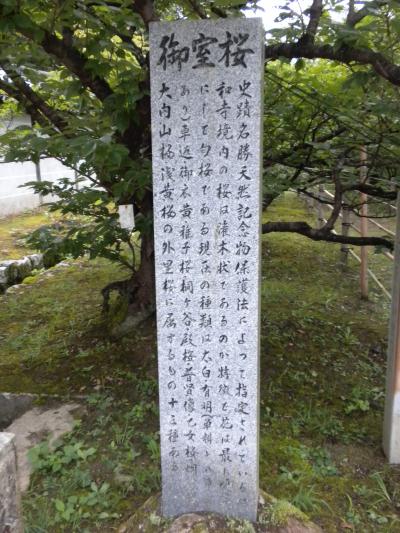 御室桜
史蹟名勝天然記念物保護法によつて指定されている
和寺境内の桜は灌木状であるのが特徴で花は最
にして匂桜である現在の種類は大白有明(単弁
あり)車返御衣黄稚子桜桐ヶ谷殿桜普賢像乙女桜
大内山楊浅黄楊の外里桜に属するもの十三種ある